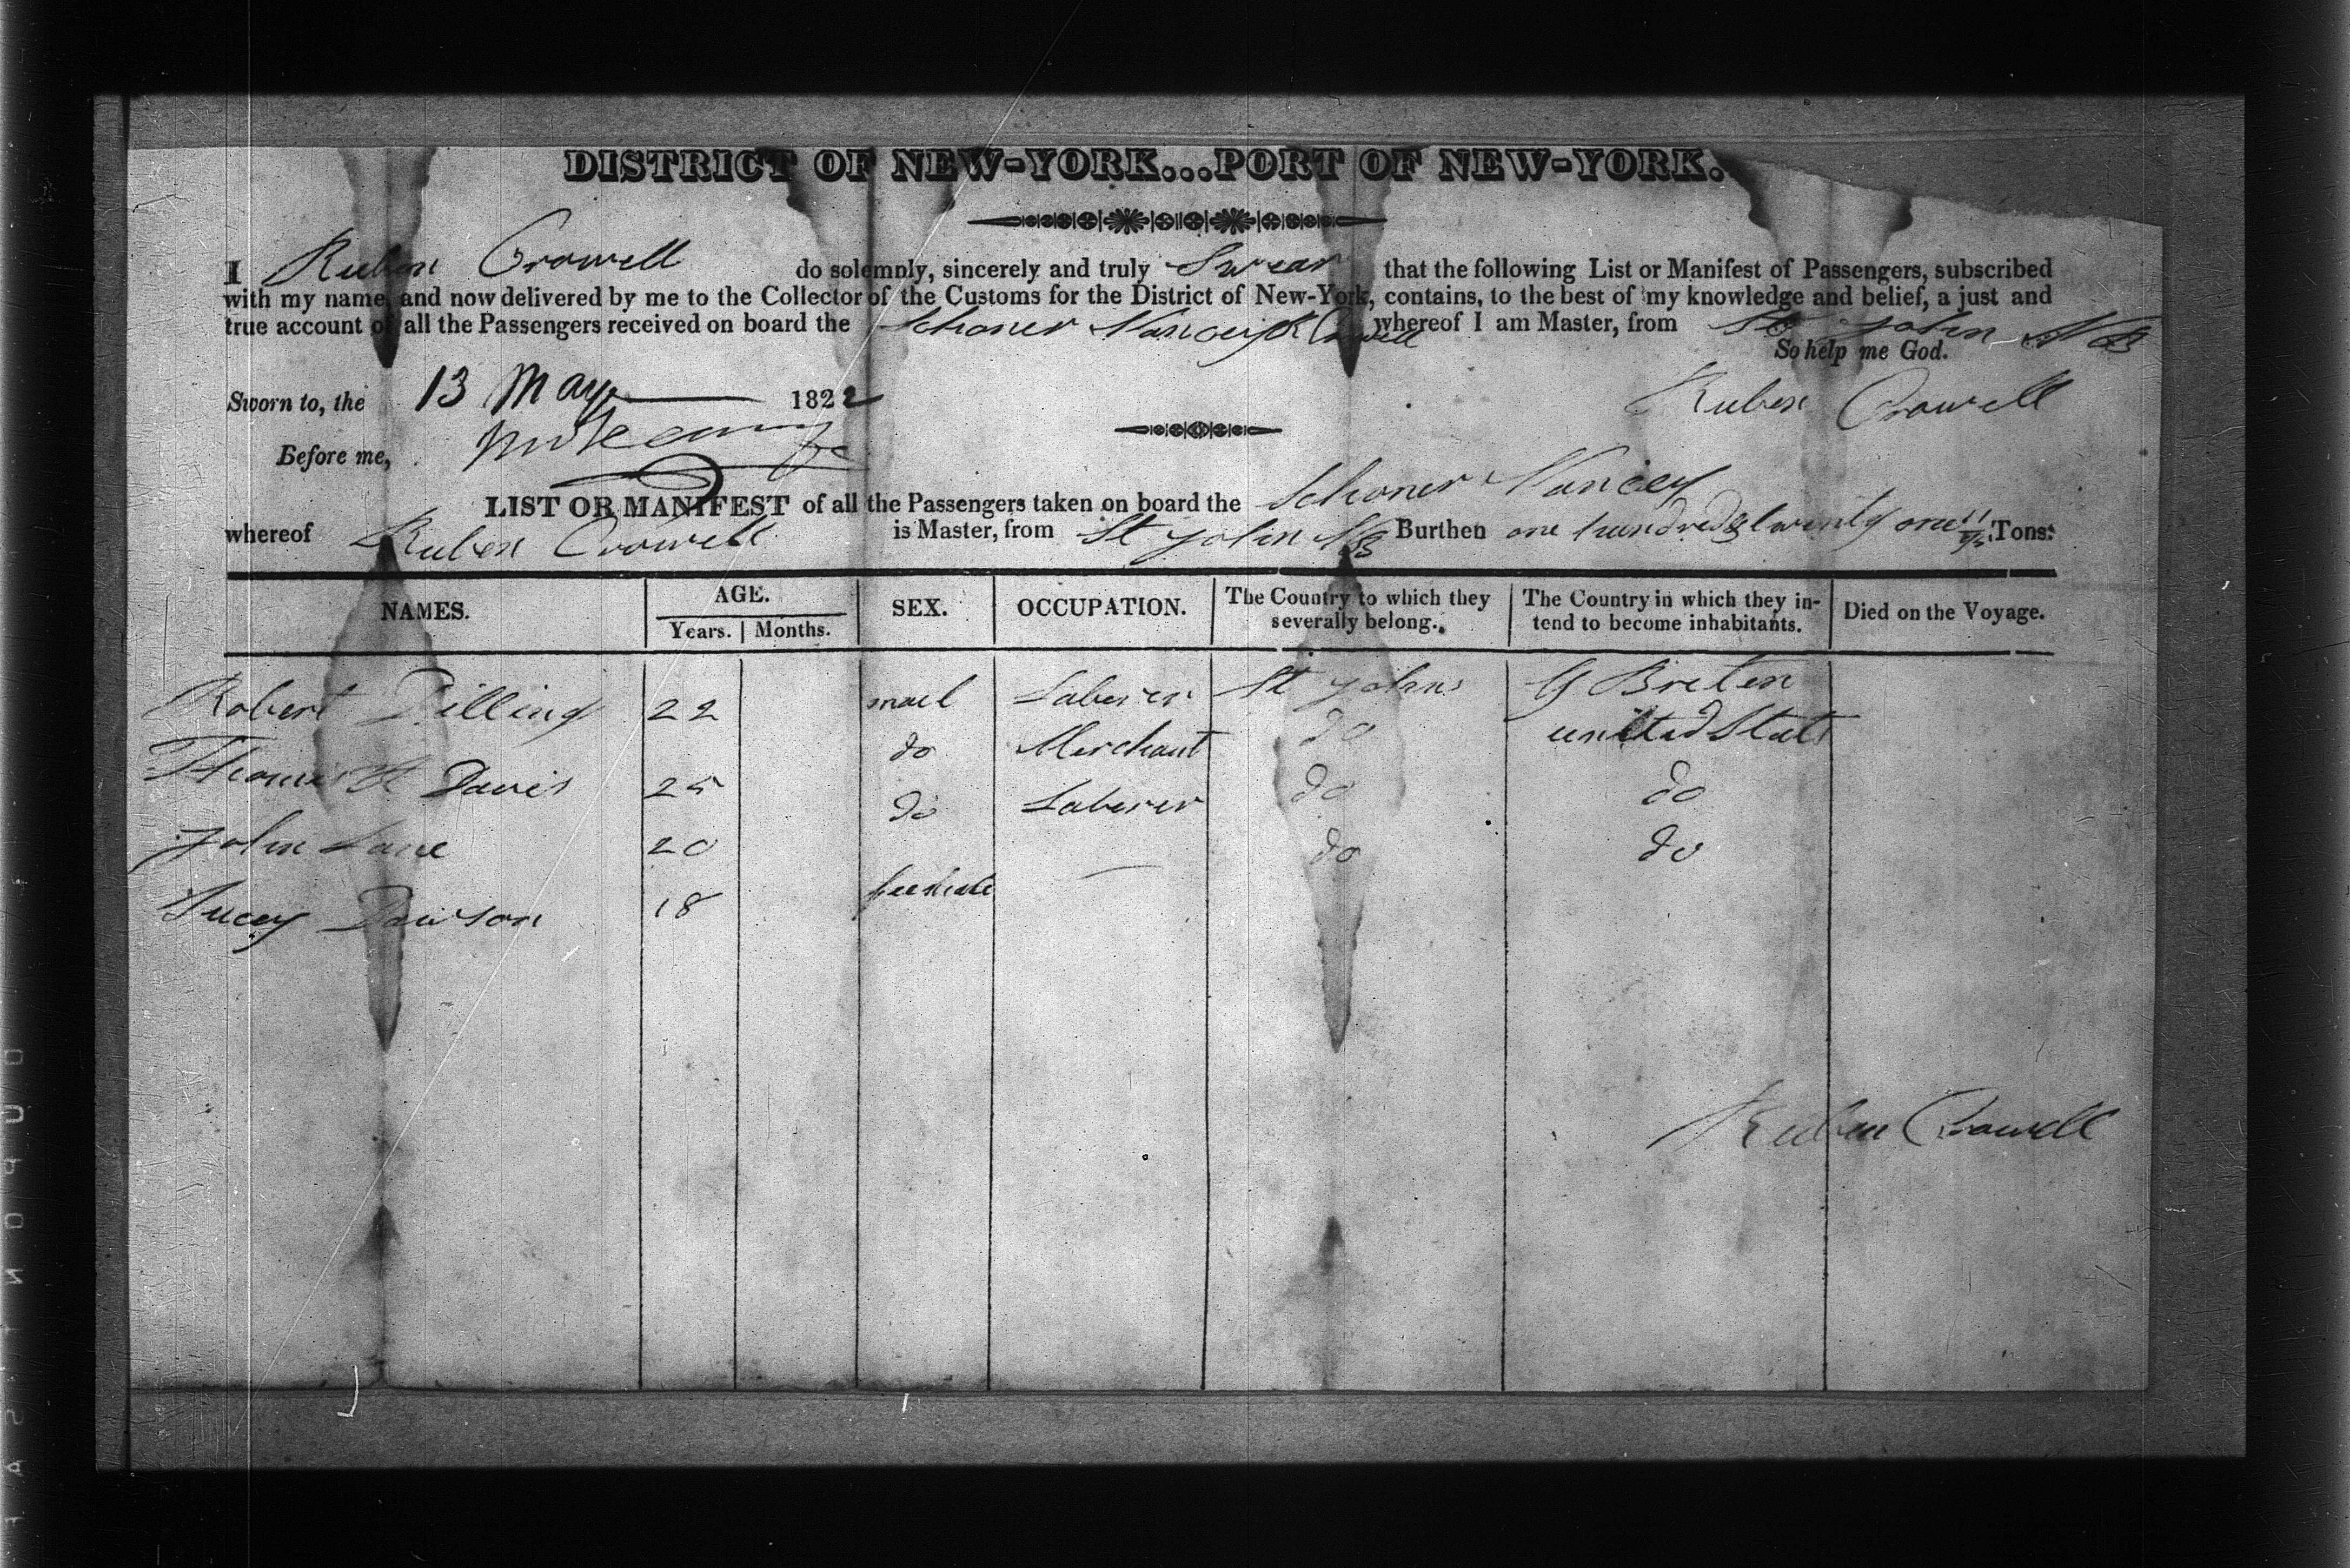 DISTRICT OF NEW-YORK...PORT OF NEW-YORK.
I Ruben Crowell do solemnly, sincerely and truly Swear that the following List or Manifest of Passengers, subscribed
with my name, and now delivered by me to the Collector of the Customs for the District of New-York, contains, to the best of my knowledge and belief, a just and
true account of all the Passengers received on board the Schoner Nancey R Crowell whereof I am Master, from St John NB
So help me God.
Sworn to, the 13 May 1822 Ruben Crowell
Before me,
LIST OR MANIFEST of all the Passengers taken on board the Schoner Nancey
whereof Ruben Crowell is Master, from St John NB Burthen one hundred & twenty one Tons.
NAMES. AGE. Years. Months. SEX. OCCUPATION. The Country to which they severally belong. The Country in which they intend to become inhabitants. Died on the Voyage.
Robert Dilling 22 mael Laberer St Johns G Breten
Thomas H Davis 25 do Merchant do united Stats
John Lane 20 do Laberer do do
Lucey Dawson 18 feemale — do do
Ruben Crowell